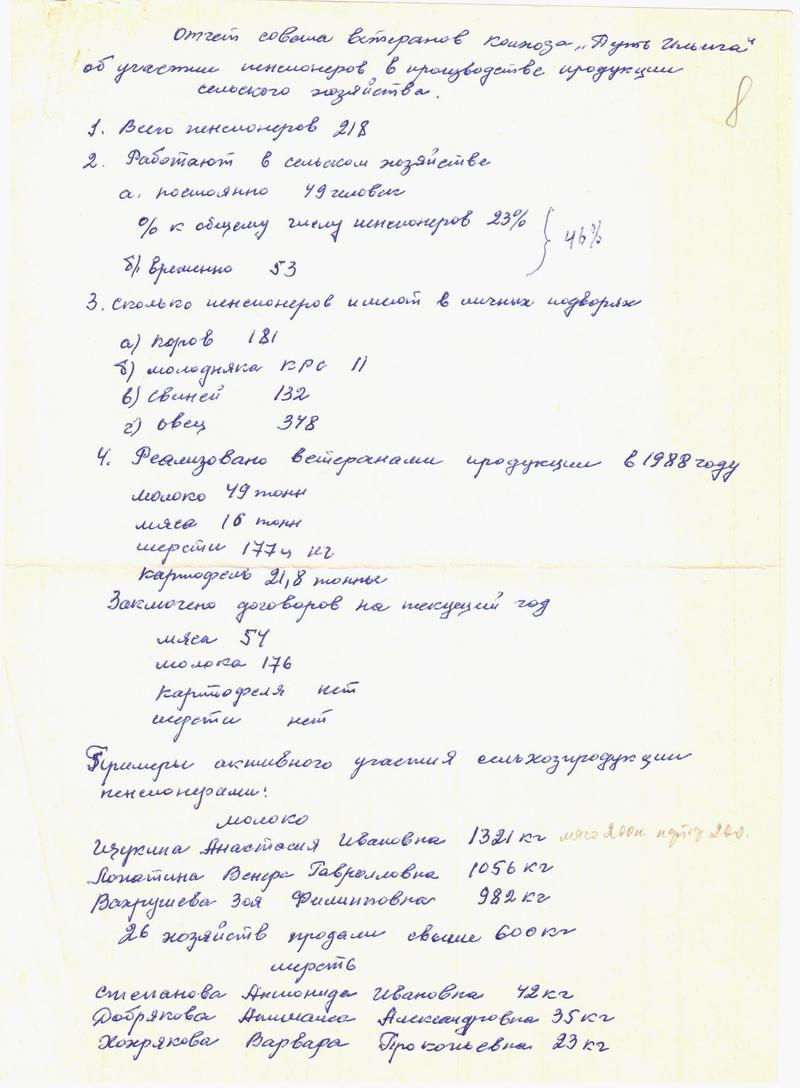 Отчет совета ветеранов колхоза „Путь Ильича"
об участии пенсионеров в производстве продукции
сельского хозяйства.
8
1. Всего пенсионеров 218
2. Работают в сельском хозяйстве
а. постоянно 49 человек
% к общему числу пенсионеров 23%
46%
б) временно 53
3. Сколько пенсионеров имеют в личных подворях
а) коров 181
б) молодняка КРС 11
в) свиней 132
г) овец 348
4. Реализовано ветеранами продукции в 1988 году
молоко 49 тонн
мяса 16 тонн
шерсти 177 кг
картофель 21,8 тонны
Заключено договоров на текущий год
мяса 54
молока 176
картофеля нет
шерсти нет
Примеры активного участия сельхозпродукции
пенсионерами:
молоко
Щукина Анастасия Ивановна 1321 кг мясо 200
Лопатина Венера Гавриловна 1056 кг
Вахрушева Зоя Филипповна 982 кг
26 хозяйств продали свыше 600 кг
шерсть
Степанова Антонида Ивановна 42 кг
Добрякова Александровна 35 кг
Хохрякова Варвара Прокопьевна 23 кг